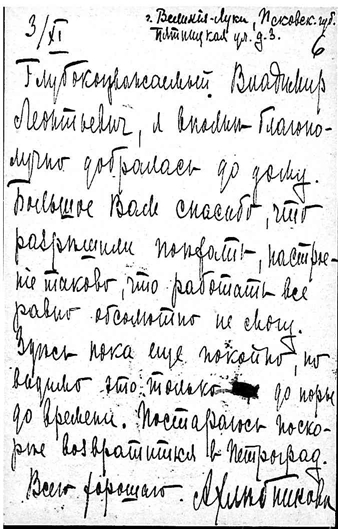 3/XI
г. Великiя-Луки, Псковск. губ.
Пятницкая ул. д. 3.
6
Глубокоуважаемый Владимир
Леонтьевич, я вполне благопо-
лучно добралась до дому.
Большое Вам спасибо, что
разрешили поехать, настрое-
нiе таково, что работать все
равно абсолютно не могу.
Здесь пока еще покойно, но
видимо это только до поры
до времени. Постараюсь поско-
рее возвратиться в Петроград.
Всего хорошаго. А Хлебникова